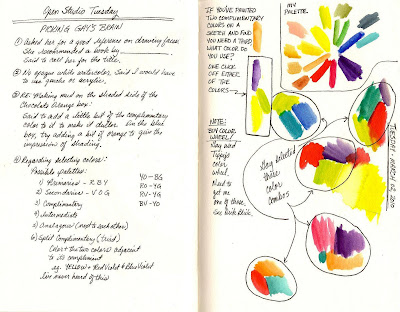 Open Studio Tuesday
PICKING GAY'S BRAIN
① Asked her for a good reference on drawing faces.
She recommended a book by
Said to call her for the title.
② No opaque white watercolor. Said I would have
to use gouache or acrylic.
③ RE: Making mud on the shaded side of the
Chocolate Orange box:
Said to add a little bit of the complimentary
color to it to make it darker. On the blue
box, try adding a bit of orange to give the
impression of shading.
④ Regarding selecting colors:
Possible palettes:
1) Primaries - R B Y
2) Secondaries - V O G
3) Complimentary
4) Intermediates
5) Analogous (next to each other)
6) Split Complimentary (triad)
Color + the two colors adjacent
to its compliment
eg. YELLOW + Red Violet & Blue Violet
I've never heard of this
YO - BG
RO - YG
RV - YG
BV - YO
IF YOU'VE PAINTED
TWO COMPLIMENTARY
COLORS ON A
SKETCH AND FIND
YOU NEED A THIRD,
WHAT COLOR DO
YOU USE?
ONE CLICK
OFF EITHER
OF THE
COLORS
MY
PALETTE
NOTE:
BUY COLOR
WHEEL!
Gay had
color
wheel.
Need to
get me
one of those.
Gay selected
these
color
combos
TUESDAY - MARCH 02, 2010